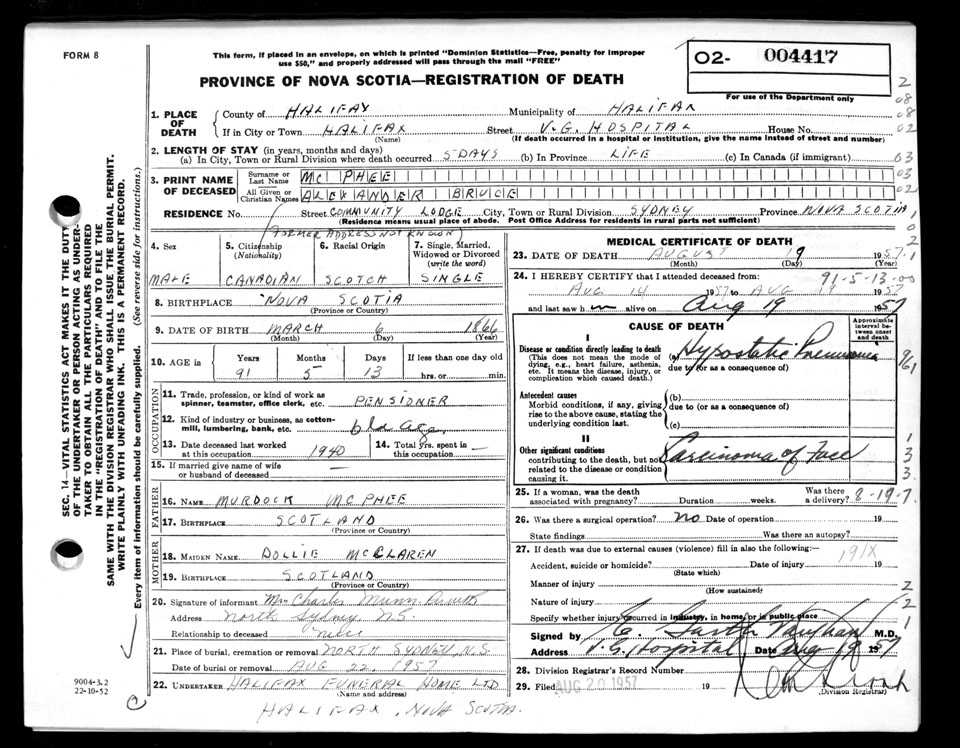 FORM 8
This form, if placed in an envelope, on which is printed "Dominion Statistics—Free, penalty for improper
use $50," and properly addressed will pass through the mail "FREE"
02- 004417
For use of the Department only
PROVINCE OF NOVA SCOTIA—REGISTRATION OF DEATH
SEC. 14—VITAL STATISTICS ACT MAKES IT THE DUTY
OF THE UNDERTAKER OR PERSON ACTING AS UNDER-
TAKER TO OBTAIN ALL THE PARTICULARS REQUIRED
IN THE "REGISTRATION OF DEATH" AND TO FILE THE
SAME WITH THE DIVISION REGISTRAR WHO SHALL ISSUE THE BURIAL PERMIT.
WRITE PLAINLY WITH UNFADING INK. THIS IS A PERMANENT RECORD.
Every item of information should be carefully supplied. (See reverse side for instructions.)
1. PLACE OF DEATH
County of HALIFAX Municipality of HALIFAX
If in City or Town HALIFAX Street V.G. HOSPITAL House No.
(Name) (If death occurred in a hospital or institution, give the name instead of street and number)
2. LENGTH OF STAY (in years, months and days)
(a) In City, Town or Rural Division where death occurred 5 DAYS (b) In Province LIFE (c) In Canada (if immigrant)
3. PRINT NAME OF DECEASED
Surname or Last Name MC PHEE
All Given or Christian Names ALEXANDER BRUCE
RESIDENCE No. Street COMMUNITY LODGE City, Town or Rural Division SYDNEY Province NOVA SCOTIA
(Residence means usual place of abode. Post Office Address for residents in rural parts not sufficient)
(FORMER ADDRESS NOT KNOWN)
4. Sex MALE
5. Citizenship (Nationality) CANADIAN
6. Racial Origin SCOTCH
7. Single, Married, Widowed or Divorced (write the word) SINGLE
8. BIRTHPLACE NOVA SCOTIA
(Province or Country)
9. DATE OF BIRTH MARCH 6 1866
(Month) (Day) (Year)
10. AGE in Years Months Days If less than one day old
91 5 13 hrs. or min.
OCCUPATION
11. Trade, profession, or kind of work as
spinner, teamster, office clerk, etc. PENSIONER
12. Kind of industry or business, as cotton-
mill, lumbering, bank, etc. old age
13. Date deceased last worked
at this occupation 1940
14. Total yrs. spent in
this occupation —
15. If married give name of wife
or husband of deceased —
FATHER
16. NAME MURDOCK MCPHEE
17. BIRTHPLACE SCOTLAND
(Province or Country)
MOTHER
18. MAIDEN NAME DOLLIE MCCLAREN
19. BIRTHPLACE SCOTLAND
(Province or Country)
20. Signature of informant Mrs Charles Munn
Address North Sydney N.S.
Relationship to deceased
21. Place of burial, cremation or removal NORTH SYDNEY, N.S.
Date of burial or removal AUG 22, 1957
22. UNDERTAKER HALIFAX FUNERAL HOME LTD
(Name and address)
HALIFAX, NOVA SCOTIA.
9004-3.2
22-10-52
MEDICAL CERTIFICATE OF DEATH
23. DATE OF DEATH AUGUST 19 1957
(Month) (Day) (Year)
24. I HEREBY CERTIFY that I attended deceased from: 91-5-13-00
AUG 14 1957 to AUG 19 1957
and last saw h m alive on Aug 19 1957
CAUSE OF DEATH
Approximate interval between onset and death
I
Disease or condition directly leading to death
(This does not mean the mode of
dying, e.g., heart failure, asthenia,
etc. It means the disease, injury, or
complication which caused death.)
(a) Hypostatic Pneumonia
due to (or as a consequence of)
Antecedent causes
Morbid conditions, if any, giving
rise to the above cause, stating the
underlying condition last.
(b)
due to (or as a consequence of)
(c)
II
Other significant conditions
contributing to the death, but not
related to the disease or condition
causing it.
Carcinoma of Face
25. If a woman, was the death
associated with pregnancy? Duration weeks. Was there a delivery? 8-19-7
26. Was there a surgical operation? No Date of operation 19
State findings Was there an autopsy?
27. If death was due to external causes (violence) fill in also the following:—
191X
Accident, suicide or homicide? Date of injury 19
(State which)
Manner of injury
(How sustained)
Nature of injury
Specify whether injury occurred in industry, in home, or in public place
Signed by M.D.
Address V.G. Hospital Date Aug 19 1957
28. Division Registrar's Record Number
29. Filed AUG 20 1957 19
(Division Registrar)